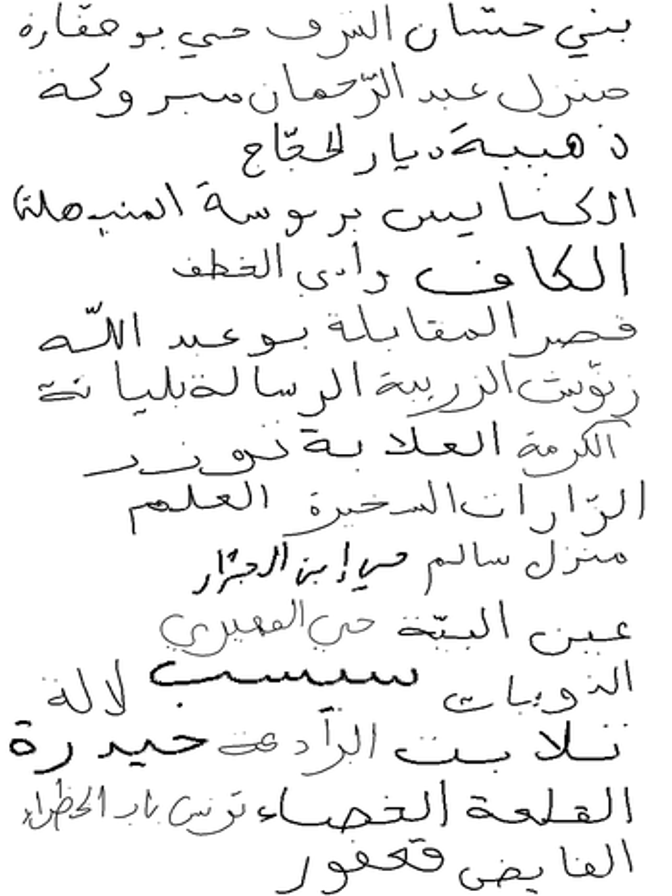 بني حسّان الشرف حي بوصفّارة
منزل عبد الرّحمان مبروكة
ذهيبة ديار الحجّاج
الكنايس بربوسة المنيهلة
الكاف وادي الخطف
قصر المقابلة بوعبد اللّه
زنّوش الزريبة الرسالة بليانة
الكرمة العلاية توزر
الزّارات السخيرة العلم
منزل سالم حي إبن الجزّار
عين البيّة حي المهيري
الذويبات سبسب لالة
تلابت الرّادعة حيدرة
القلعة الخصاء تونس باب الخظراء
الفايض قعفور